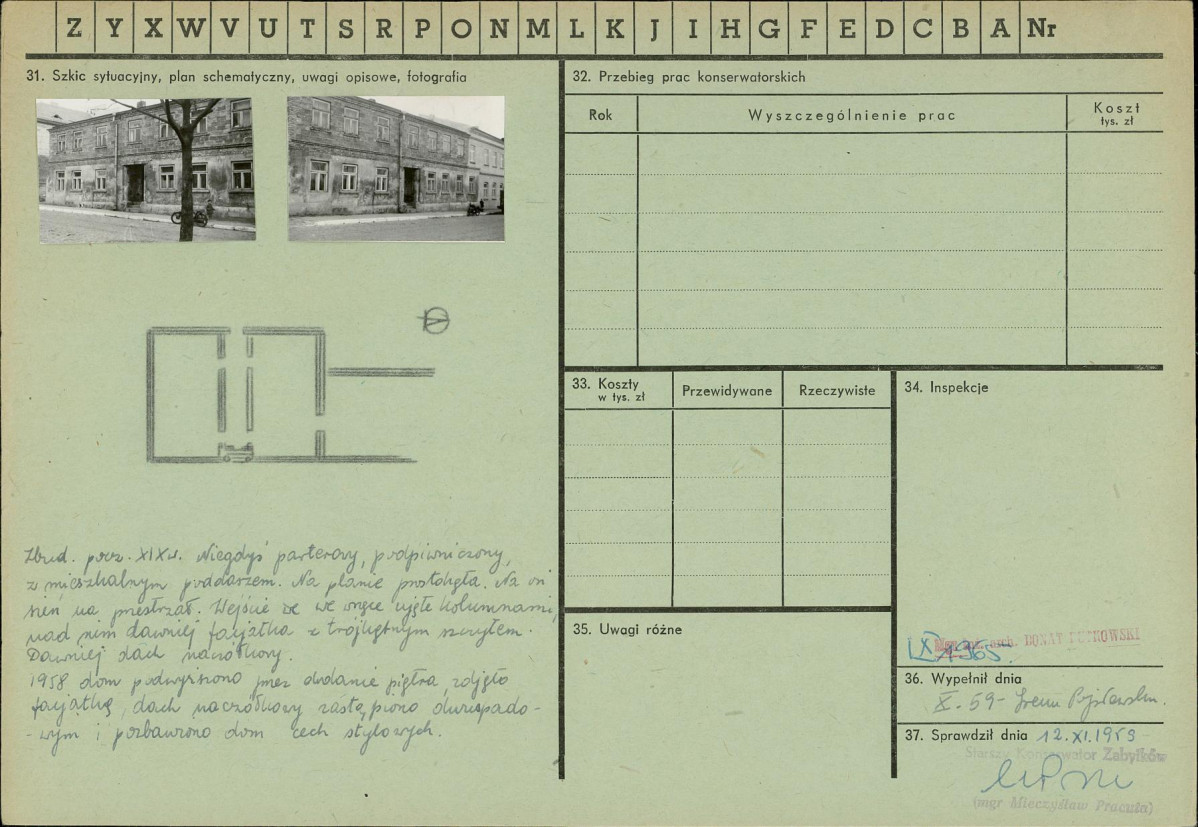 Z Y X W V U T S R P O N M L K J I H G F E D C B A Nr
31. Szkic sytuacyjny, plan schematyczny, uwagi opisowe, fotografia
Zbud. pocz. XIX w. Niegdyś parterowy, podpiwniczony,
z mieszkalnym poddaszem. Na planie prostokąta. Na osi
sień na przestrzał. Wejście we wnęce ujęte kolumnami,
nad nim dawniej facjatka z trójkątnym szczytem.
Dawniej dach naczółkowy.
1958 dom podwyższono przez dodanie piętra, zdjęto
facjatkę, dach naczółkowy zastąpiono dwuspado-
-wym i pozbawiono dom cech stylowych.
32. Przebieg prac konserwatorskich
Rok
Wyszczególnienie prac
Koszt
tys. zł
33. Koszty
w tys. zł
Przewidywane
Rzeczywiste
34. Inspekcje
arch. DONAT
IX 1965.
35. Uwagi różne
36. Wypełnił dnia
X. 59 - Irena
37. Sprawdził dnia 12.XI.1959
Starszy Konserwator Zabytków
(mgr Mieczysław Pracuta)